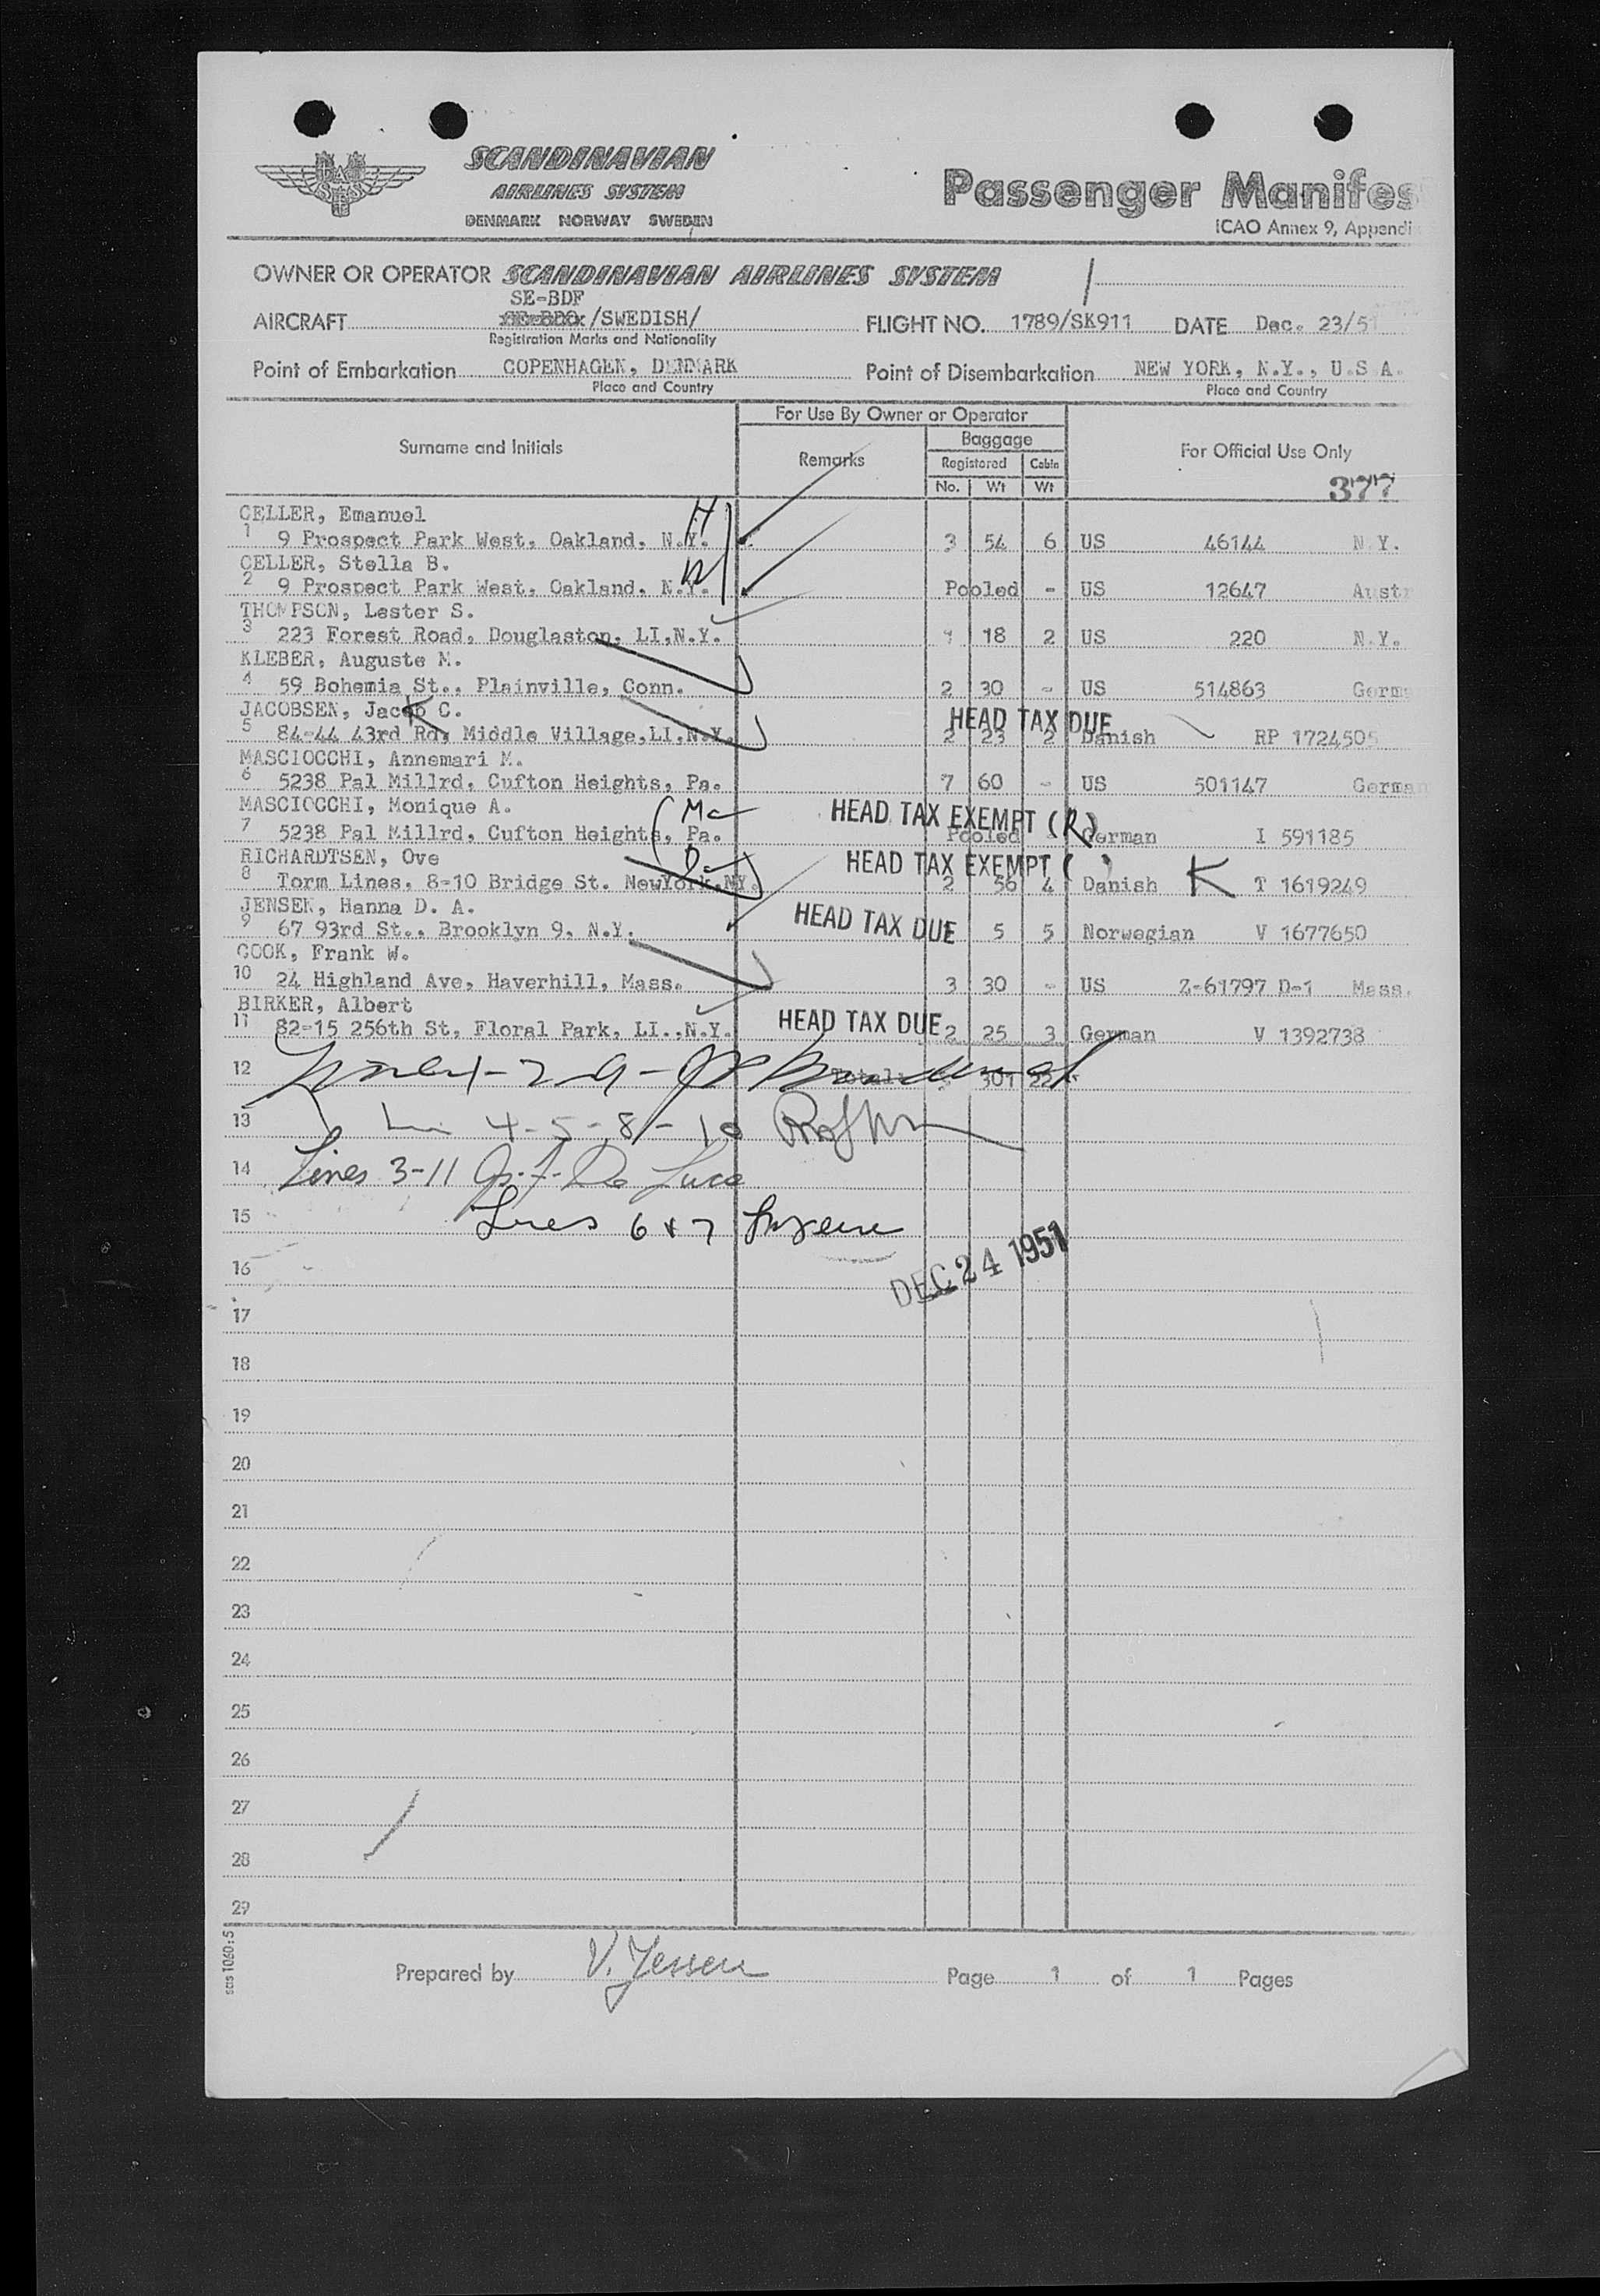 SCANDINAVIAN
AIRLINES SYSTEM
DENMARK NORWAY SWEDEN
Passenger Manifes
ICAO Annex 9, Appendi
OWNER OR OPERATOR SCANDINAVIAN AIRLINES SYSTEM
SE-BDF
AIRCRAFT /SWEDISH/ FLIGHT NO. 1789/SK911 DATE Dec. 23/51
Registration Marks and Nationality
Point of Embarkation COPENHAGEN, DENMARK Point of Disembarkation NEW YORK, N.Y., U.S.A.
Place and Country Place and Country
For Use By Owner or Operator
Surname and Initials Remarks Baggage For Official Use Only
Registered Cabin
No. Wt Wt
377
CELLER, Emanuel H
1 9 Prospect Park West, Oakland, N.Y. 3 54 6 US 46144 N.Y.
CELLER, Stella B. W
2 9 Prospect Park West, Oakland, N.Y. Pooled - US 12647 Austr
THOMPSON, Lester S.
3 223 Forest Road, Douglaston, LI,N.Y. 1 18 2 US 220 N.Y.
KLEBER, Auguste M.
4 59 Bohemia St., Plainville, Conn. 2 30 - US 514863 Germ
JACOBSEN, Jacob C. K HEAD TAX DUE
5 84-44 43rd Rd, Middle Village,LI,N.Y. 2 23 2 Danish RP 1724505
MASCIOCCHI, Annemari M.
6 5238 Pal Millrd, Cufton Heights, Pa. 7 60 - US 501147 German
MASCIOCCHI, Monique A. HEAD TAX EXEMPT (R)
7 5238 Pal Millrd, Cufton Heights, Pa. Pooled - German I 591185
RICHARDTSEN, Ove HEAD TAX EXEMPT ( )
8 Torm Lines, 8-10 Bridge St. NewYork,NY. 2 56 4 Danish K T 1619249
JENSEN, Hanna D. A. HEAD TAX DUE
9 67 93rd St., Brooklyn 9, N.Y. 1 5 5 Norwegian V 1677650
COOK, Frank W.
10 24 Highland Ave, Haverhill, Mass. 3 30 - US Z-61797 D-1 Mass.
BIRKER, Albert HEAD TAX DUE
11 82-15 256th St, Floral Park, LI.,N.Y. 2 25 3 German V 1392738
12 1-2-9- Total: 301 22
13 4-5-8-10
14 Lines 3-11 De Luca
15 Lines 6 & 7
DEC 24 1951
16
17
18
19
20
21
22
23
24
25
26
27
28
29
sas 1060:5
Prepared by V. Jessen Page 1 of 1 Pages